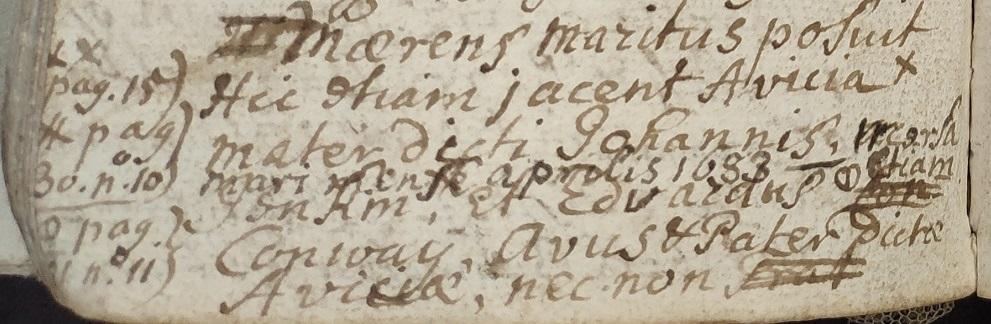 Mærens maritus posuit
x
pag. 15) Hic etiam jacent Avicia x
# pag) mater dicti Johannis, morsa
30. n.o 10) mense aprilis 1683 — etiam
et Edvardus
pag.) Conway, Avus & Pater dictæ
n.o 11) Aviciæ, nec non